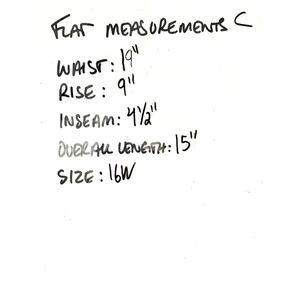 FLAT MEASUREMENTS C
WAIST: 19"
RISE: 9"
INSEAM: 4½"
OVERALL LENGTH: 15"
SIZE: 16W